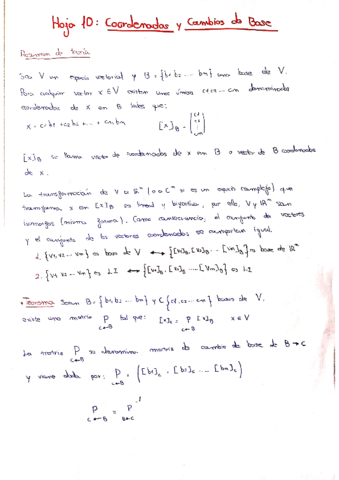 Hoja 10: Coordenadas y Cambios de Base
Resumen de teoría
Sea V un espacio vectorial y B = {b1 b2 ... bn} una base de V.
Para cualquier vector x ∈ V existen unos únicos c1 c2 ... cn denominados
coordenadas de x en B tales que:
x = c1b1 + c2b2 + ... + cnbn [x]B = (c1 c2 ⋮ cn)
[x]B se llama vector de coordenadas de x en B o vector de B coordenadas
de x.
La transformación de V a ℝⁿ (o a ℂⁿ si es un espacio complejo) que
transforma x en [x]B es lineal y biyectiva, por ello, V y ℝⁿ son
isomorfos (misma forma). Como consecuencia, el conjunto de vectores
y el conjunto de los vectores coordenados se comportan igual.
1. {v1, v2 ... vn} es base de V ⟺ {[v1]B, [v2]B, ... [vn]B} es base de ℝⁿ
2. {v1, v2 ... vn} es LI ⟺ {[v1]B, [v2]B, ... [vn]B} es LI
• Teorema: Sean B = {b1 b2 ... bn} y C {c1, c2 ... cn} bases de V.
existe una matriz P C←B tal que: [x]C = P C←B [x]B x ∈ V
La matriz P C←B se denomina matriz de cambio de base de B → C
y viene dada por: P C←B = ([b1]C, [b2]C ... [bn]C)
P C←B = P B←C ⁻¹